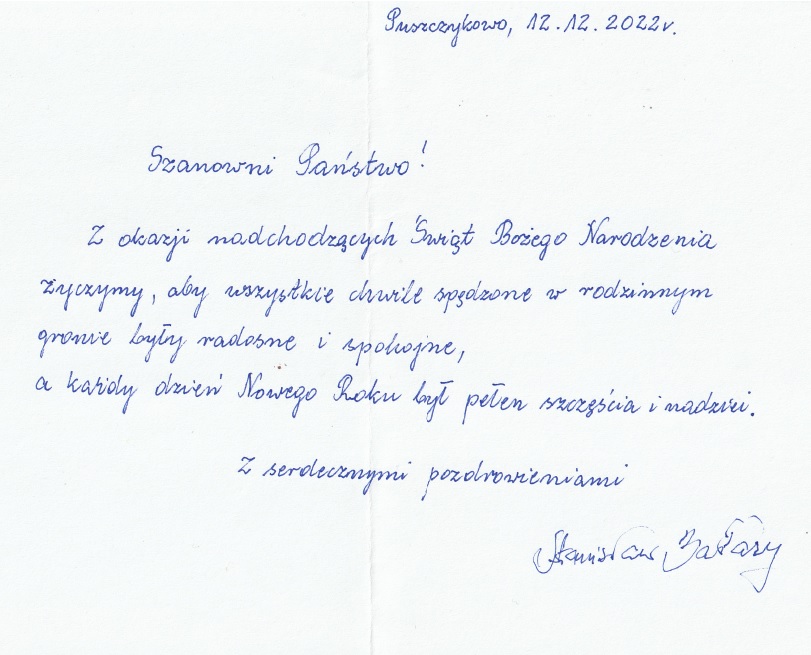 Puszczykowo, 12.12.2022r.
Szanowni Państwo!
Z okazji nadchodzących Świąt Bożego Narodzenia
życzymy, aby wszystkie chwile spędzone w rodzinnym
gronie były radosne i spokojne,
a każdy dzień Nowego Roku był pełen szczęścia i nadziei.
Z serdecznymi pozdrowieniami
Stanisław